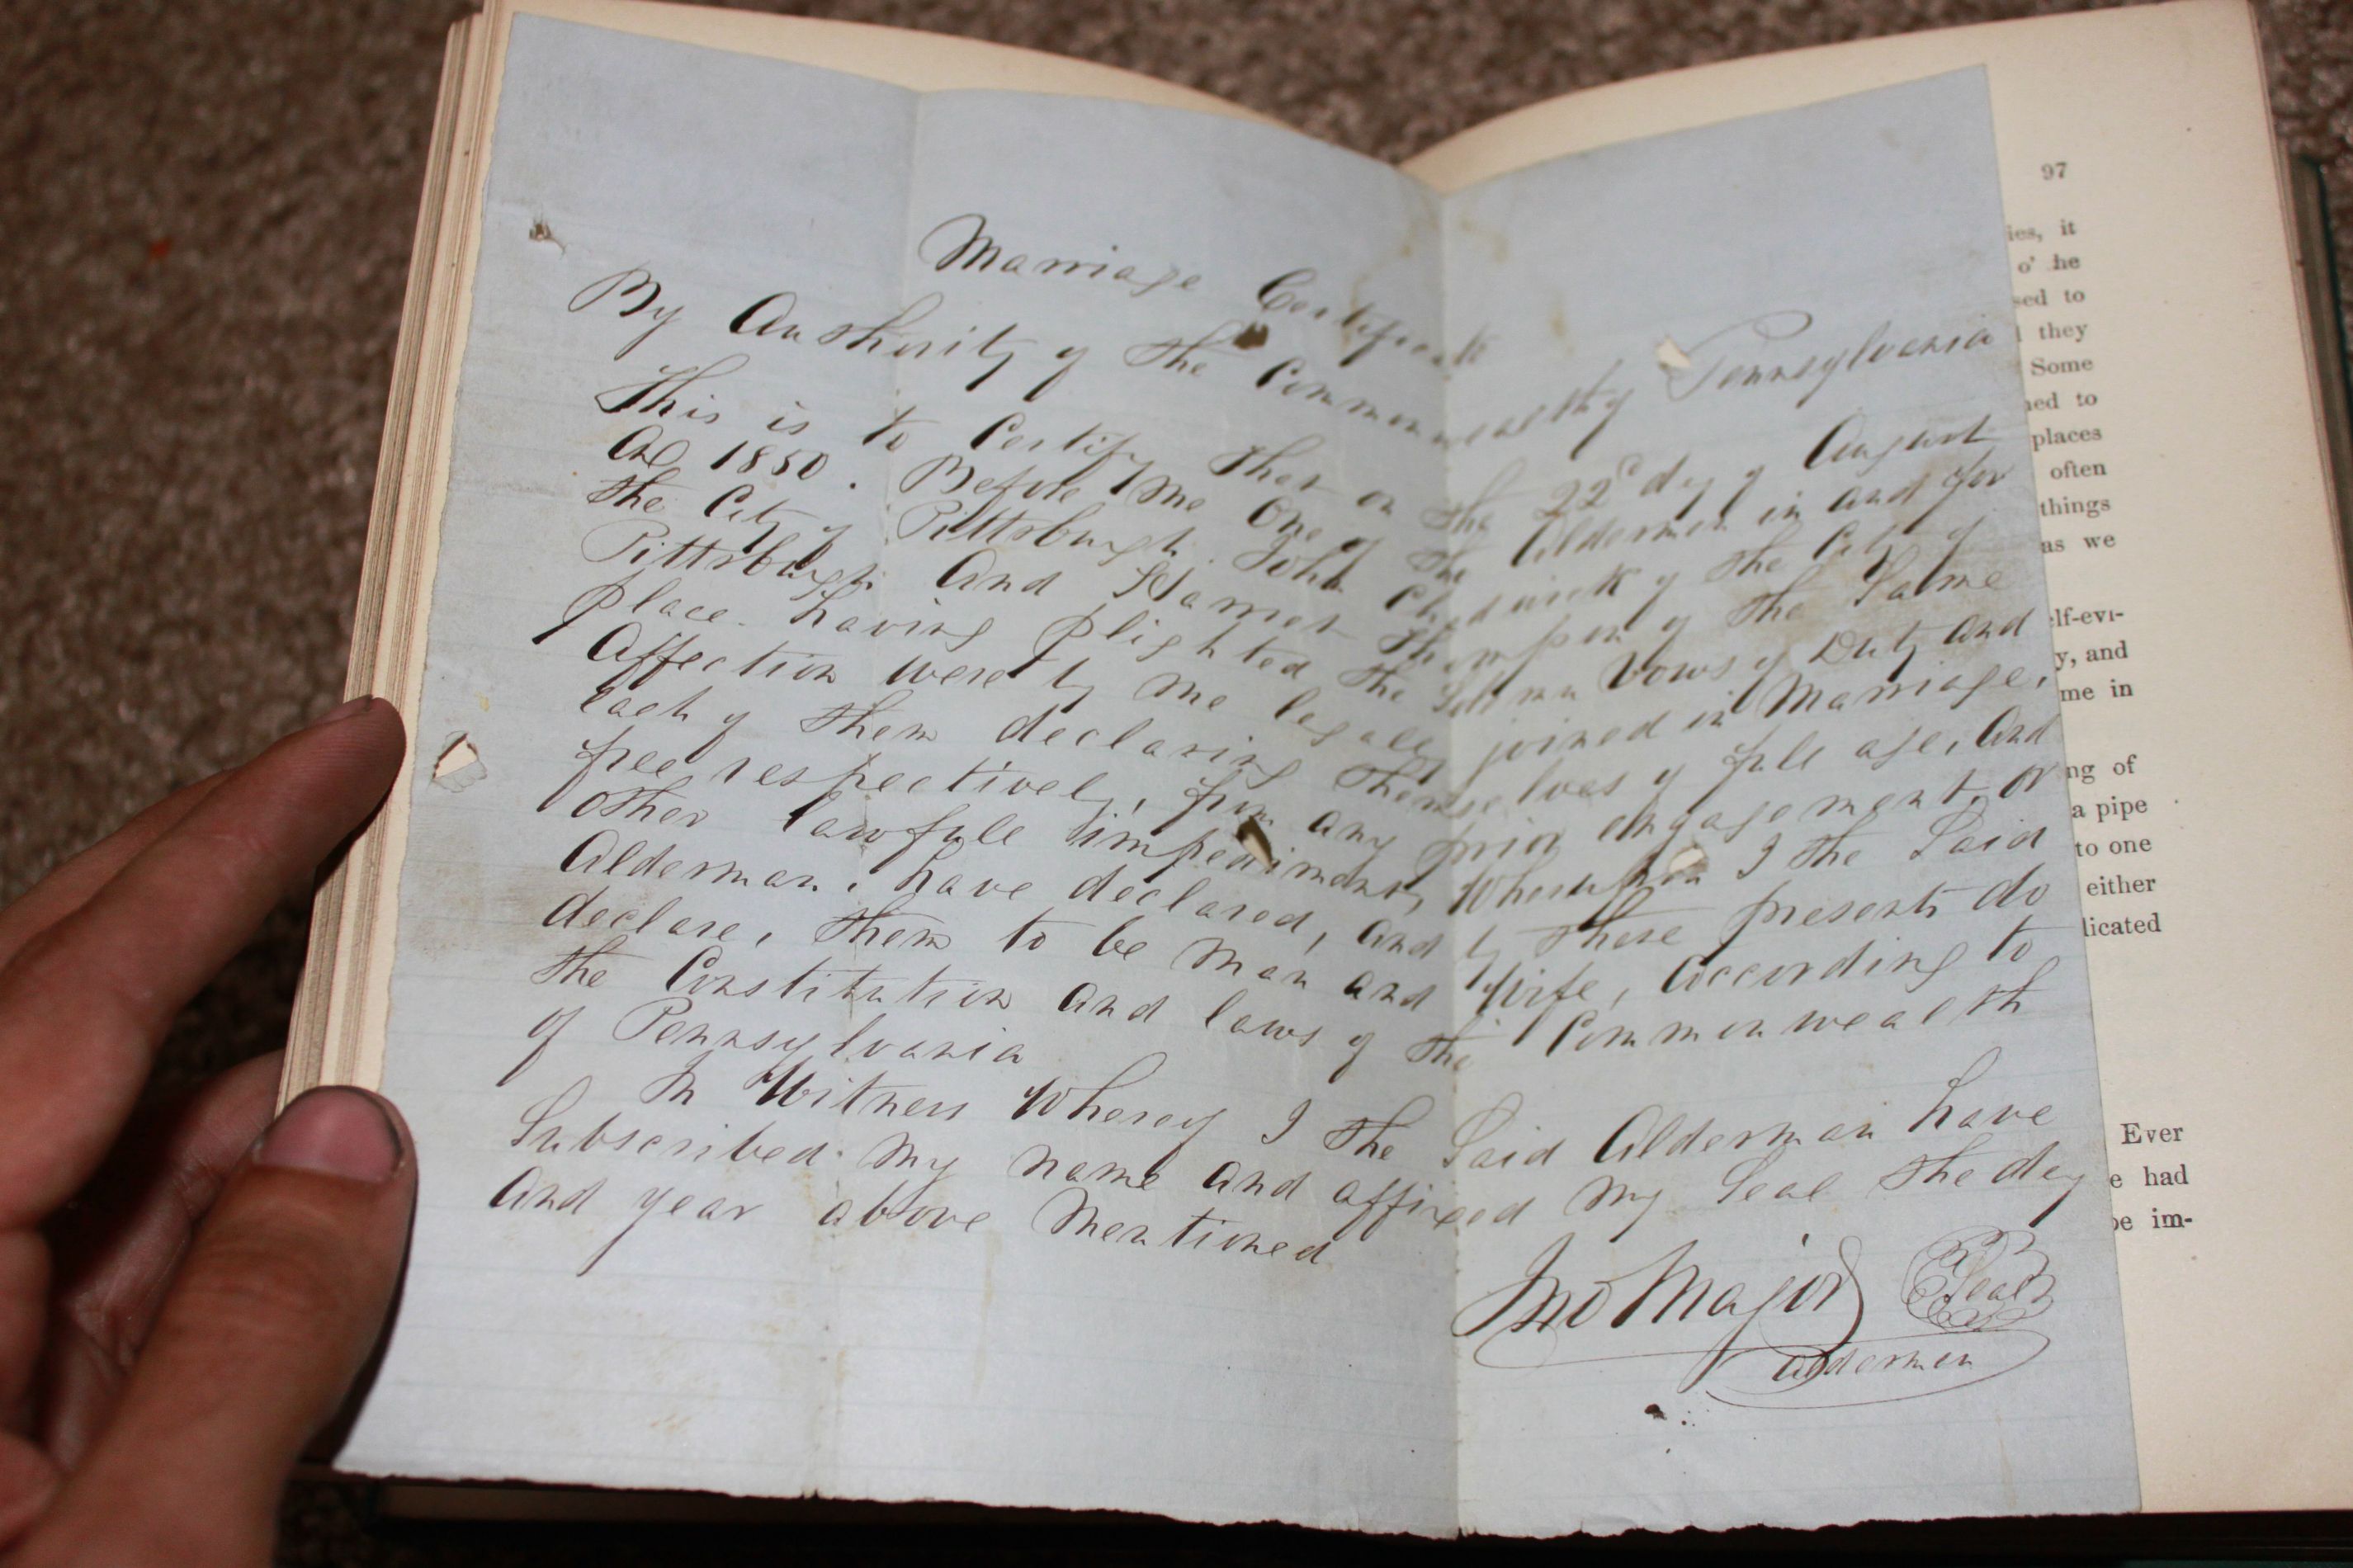 Marriage Certificate
By Authority of the Commonwealth of Pennsylvania
This is to Certify That on the 22d day of August
AD 1850. Before me One of the Aldermen in and for
the City of Pittsburgh. John Chadwick of the City of
Pittsburgh And Harriet Thompson of the Same
place having plighted the Solemn Vows of Duty and
Affection were by me legally joined in Marriage,
Each of them declaring themselves of full age, And
free respectively, from any prior engagement, or
other lawfull impediment, Whereupon I the Said
Alderman, have declared, and by these presents do
declare, them to be man and Wife, According to
the Constitution and laws of the Commonwealth
of Pennsylvania
In Witness Whereof I the Said Alderman have
Subscribed my name and affixed my Seal the day
And year above Mentioned
Jno Major Seal
Alderman
97
ies, it
o' he
sed to
they
Some
ned to
places
often
things
as we
elf-evi-
y, and
me in
ng of
a pipe
to one
either
licated
Ever
e had
be im-